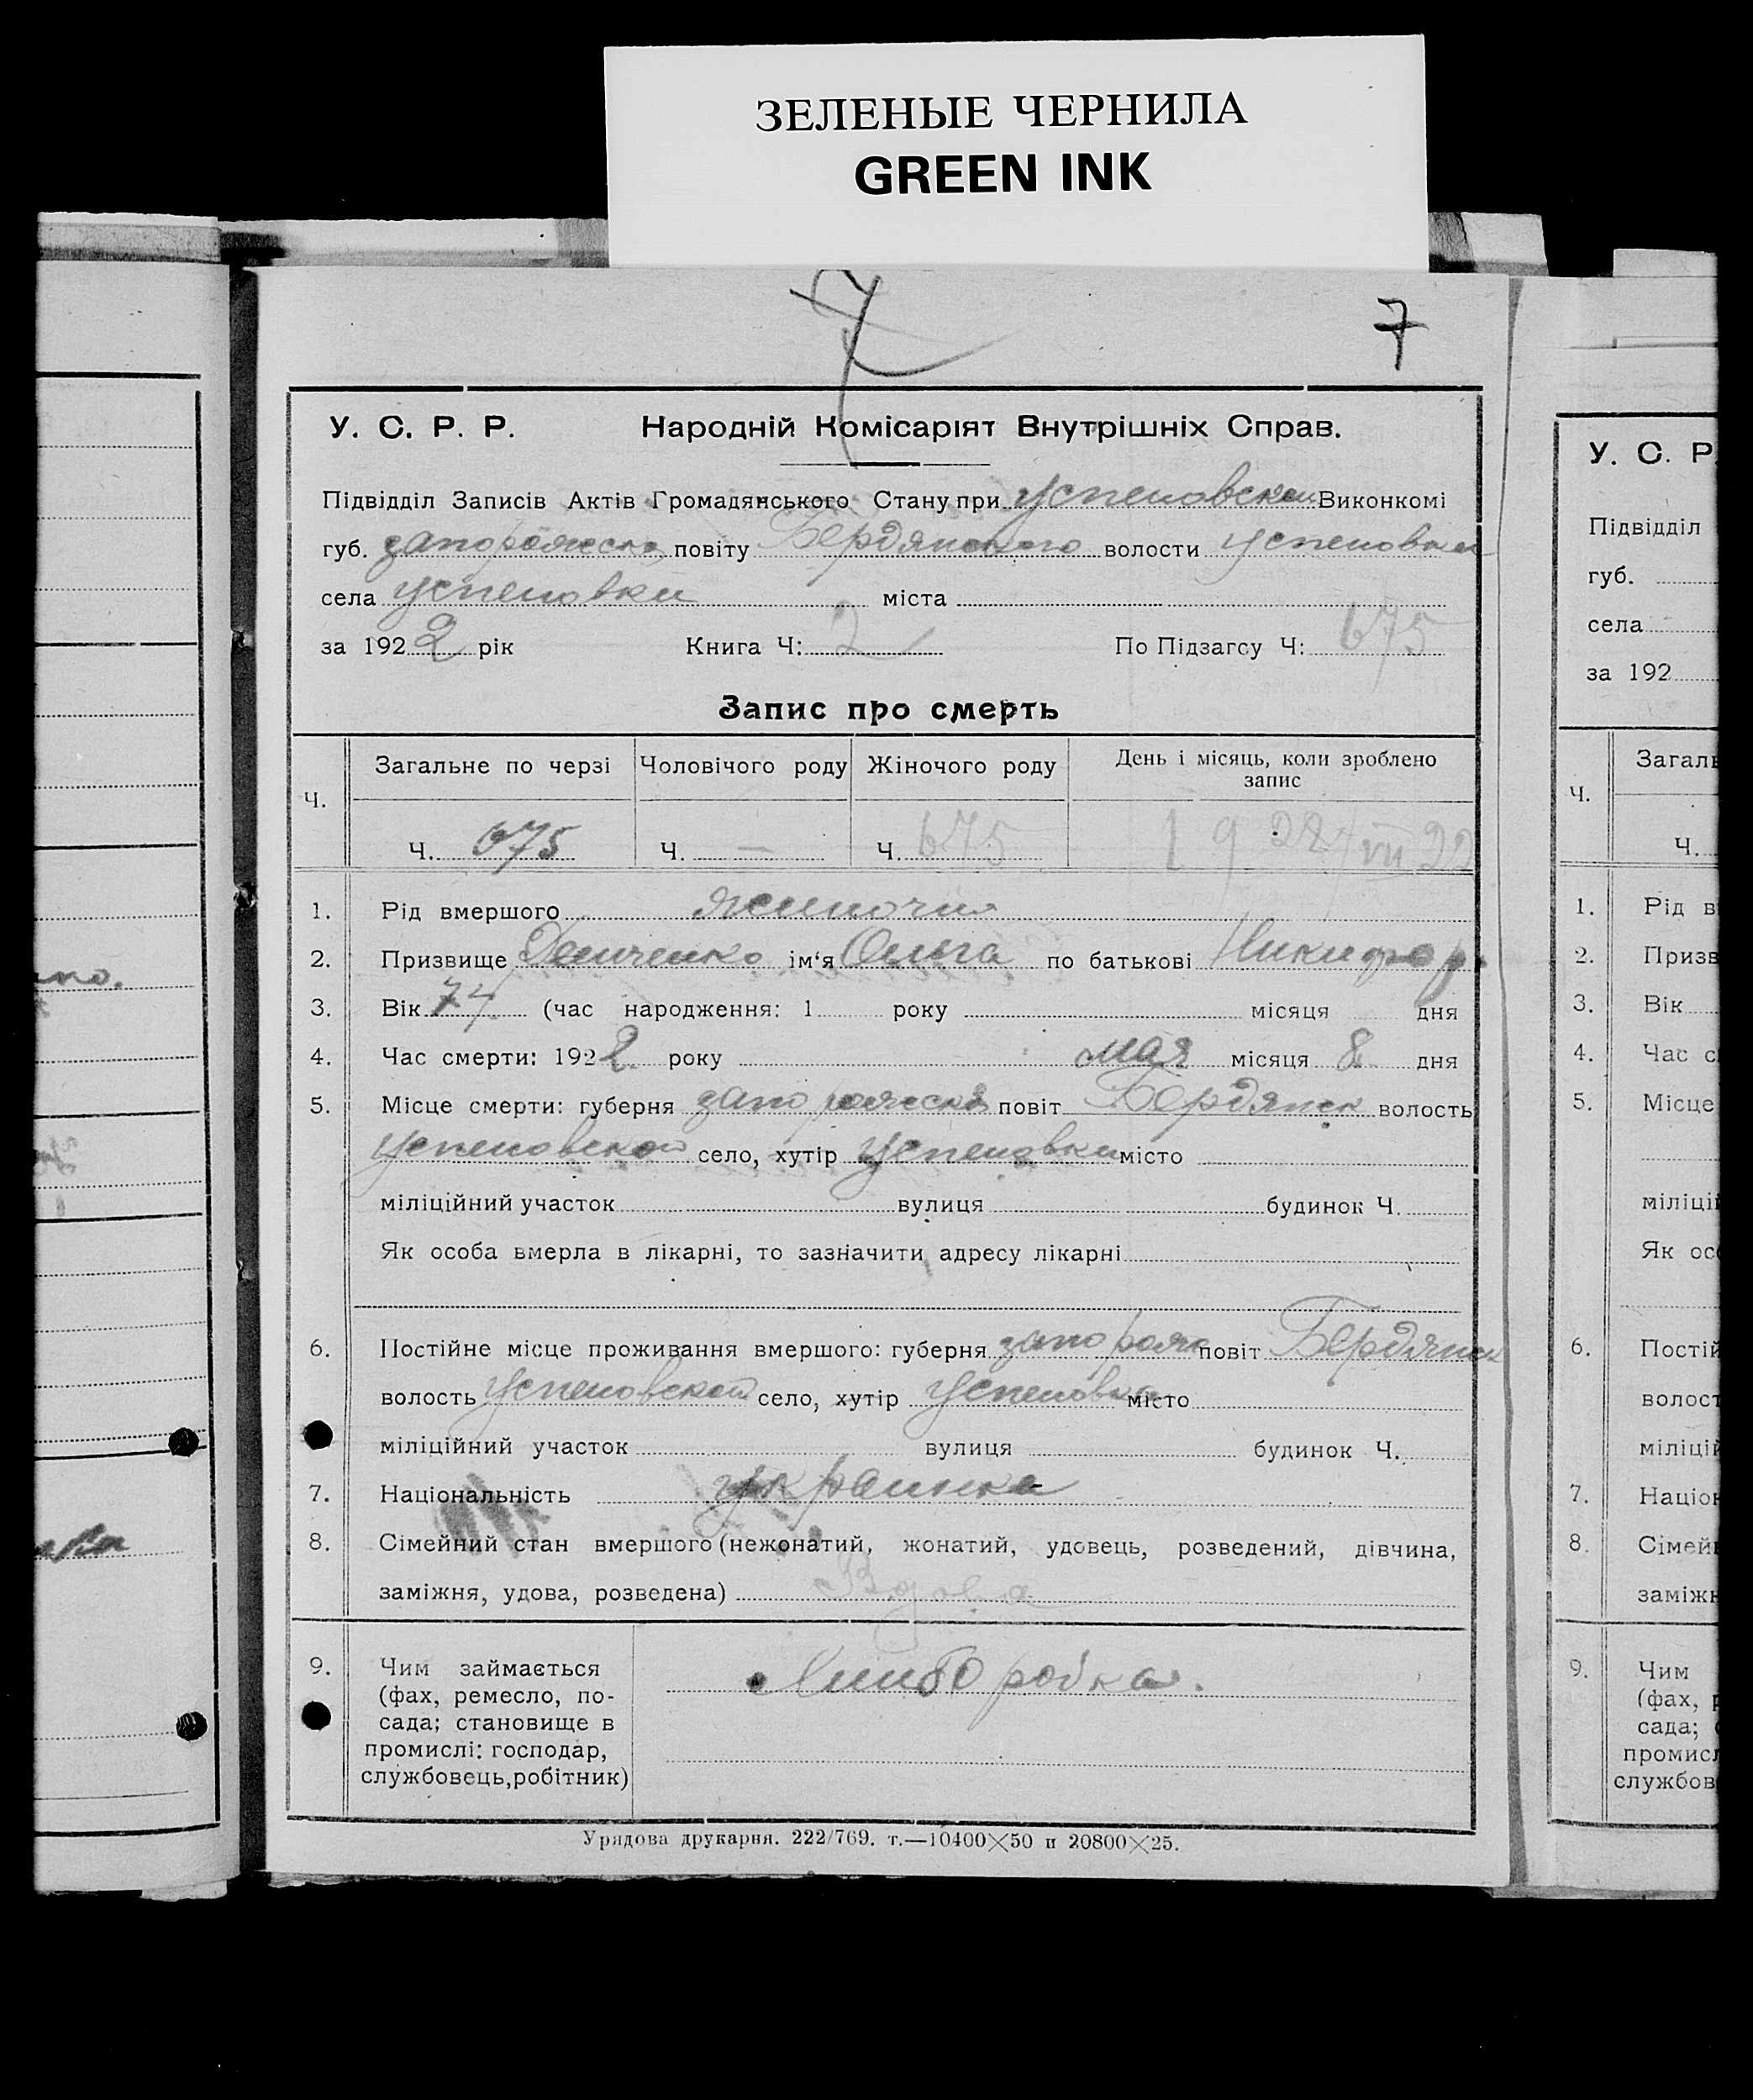 ЗЕЛЕНЫЕ ЧЕРНИЛА
GREEN INK
7 7
У. С. Р. Р. Народній Комісаріят Внутрішніх Справ.
Підвідділ Записів Актів Громадянського Стану при Успеновском Виконкомі
губ. запорожеско повіту Бердянского волости Успеновка
села Успеновки міста
за 1922 рік Книга Ч: 2 По Підзагсу Ч: 675
Запис про смерть
Ч. Загальне по черзі Чоловічого роду Жіночого роду День і місяць, коли зроблено запис
Ч. 675 Ч. — Ч. 675
1. Рід вмершого жиночий
2. Призвище ім‘я Ольга по батькові Никифор.
3. Вік 74 (час народження: 1 року місяця дня
4. Час смерти: 1922 року мая місяця 8 дня
5. Місце смерти: губерня запорожеской повіт Бердянск волость
Успеновской село, хутір Успеновки місто
міліційний участок вулиця будинок Ч.
Як особа вмерла в лікарні, то зазначити адресу лікарні
6. Постійне місце проживання вмершого: губерня запорож повіт Бердянск
волость Успеновской село, хутір Успеновка місто
міліційний участок вулиця будинок Ч.
7. Національність украинка
8. Сімейний стан вмершого (нежонатий, жонатий, удовець, розведений, дівчина,
заміжня, удова, розведена) Вдова
9. Чим займається
(фах, ремесло, по-
сада; становище в
промислі: господар,
службовець, робітник)
Урядова друкарня. 222/769. т.—10400×50 п 20800×25.
У. С. Р
Підвідділ
губ.
села
за 192
Ч. Загаль
Ч.
1. Рід в
2. Призв
3. Вік
4. Час с
5. Місце
міліцій
Як осо
6. Постій
волост
міліцій
7. Націон
8. Сімей
заміжн
9. Чим
(фах, р
сада;
промисл
службов